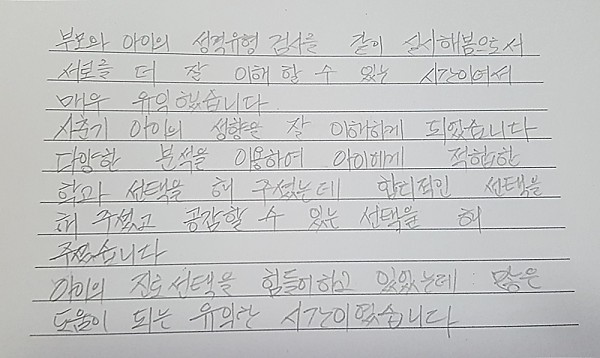 부모와 아이의 성격유형 검사를 같이 실시해봄으로서
서로를 더 잘 이해 할 수 있는 시간이여서
매우 유익했습니다
사춘기 아이의 성향을 잘 이해하게 되었습니다
다양한 분석을 이용하여 아이에게 적합한
학과 선택을 해 주셨는데 합리적인 선택을
해 주셨고 공감할 수 있는 선택을 해
주셨습니다
아이의 진로선택을 힘들어하고 있었는데 많은
도움이 되는 유익한 시간이였습니다